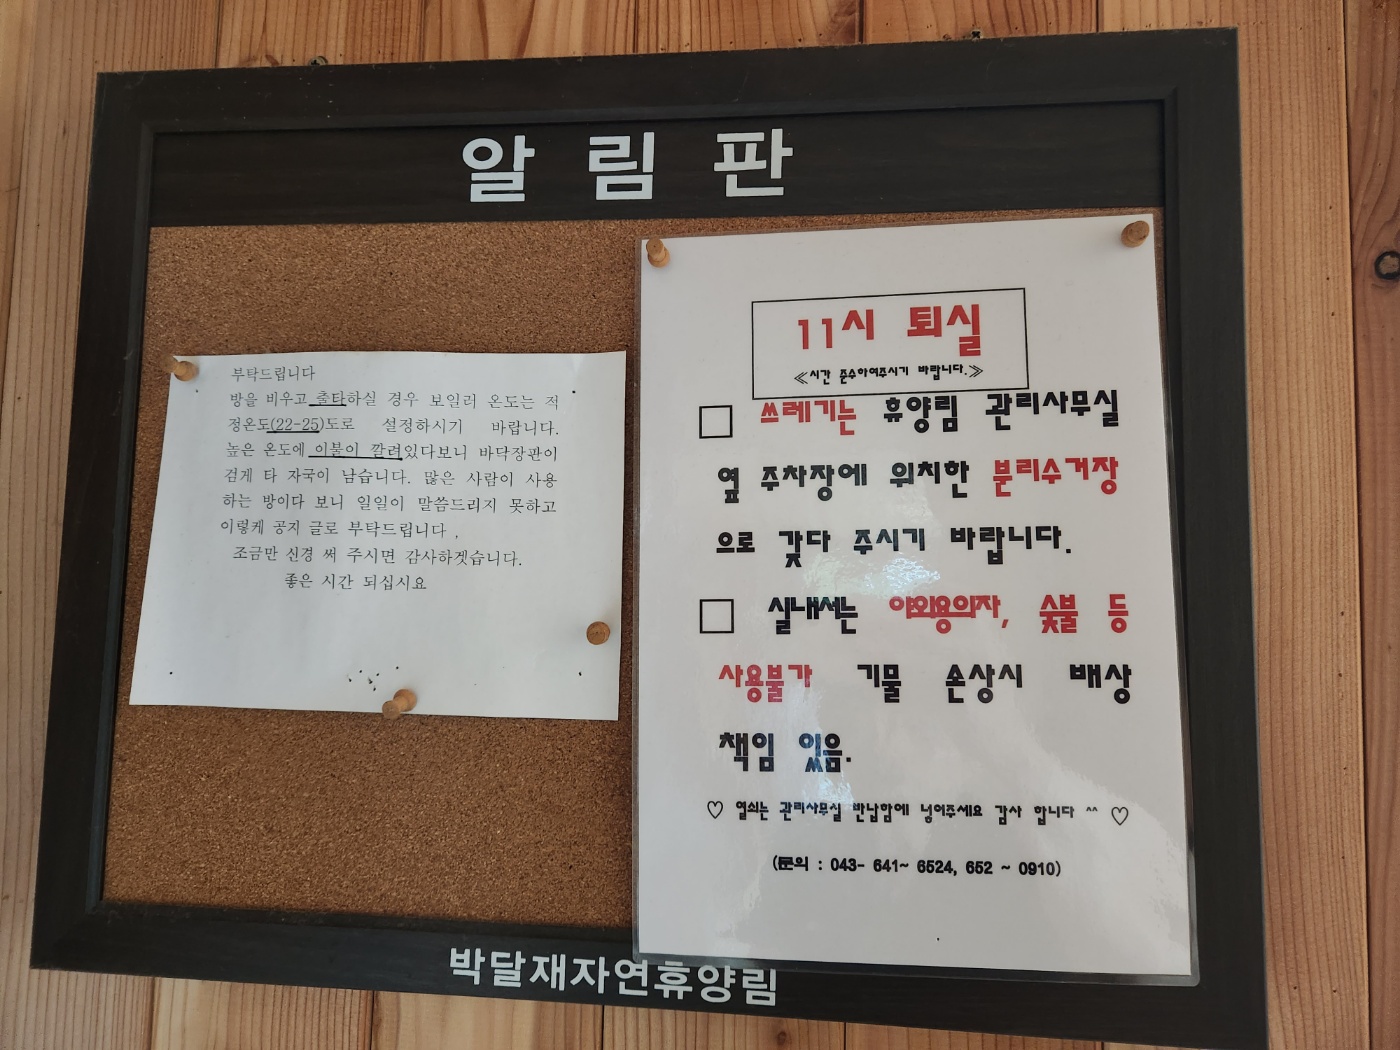 알림판
부탁드립니다
방을 비우고 출타하실 경우 보일러 온도는 적
정온도(22-25)도로 설정하시기 바랍니다.
높은 온도에 이불이 깔려있다보니 바닥장판이
검게 타 자국이 남습니다. 많은 사람이 사용
하는 방이다 보니 일일이 말씀드리지 못하고
이렇게 공지 글로 부탁드립니다 ,
조금만 신경 써 주시면 감사하겟습니다.
좋은 시간 되십시요
11시 퇴실
≪시간 준수하여주시기 바랍니다.≫
□ 쓰레기는 휴양림 관리사무실
옆 주차장에 위치한 분리수거장
으로 갖다 주시기 바랍니다.
□ 실내서는 야외용의자, 숯불 등
사용불가 기물 손상시 배상
책임 있음.
♡ 열쇠는 관리사무실 반납함에 넣어주세요 감사 합니다 ^^ ♡
(문의 : 043- 641~ 6524, 652 ~ 0910)
박달재자연휴양림